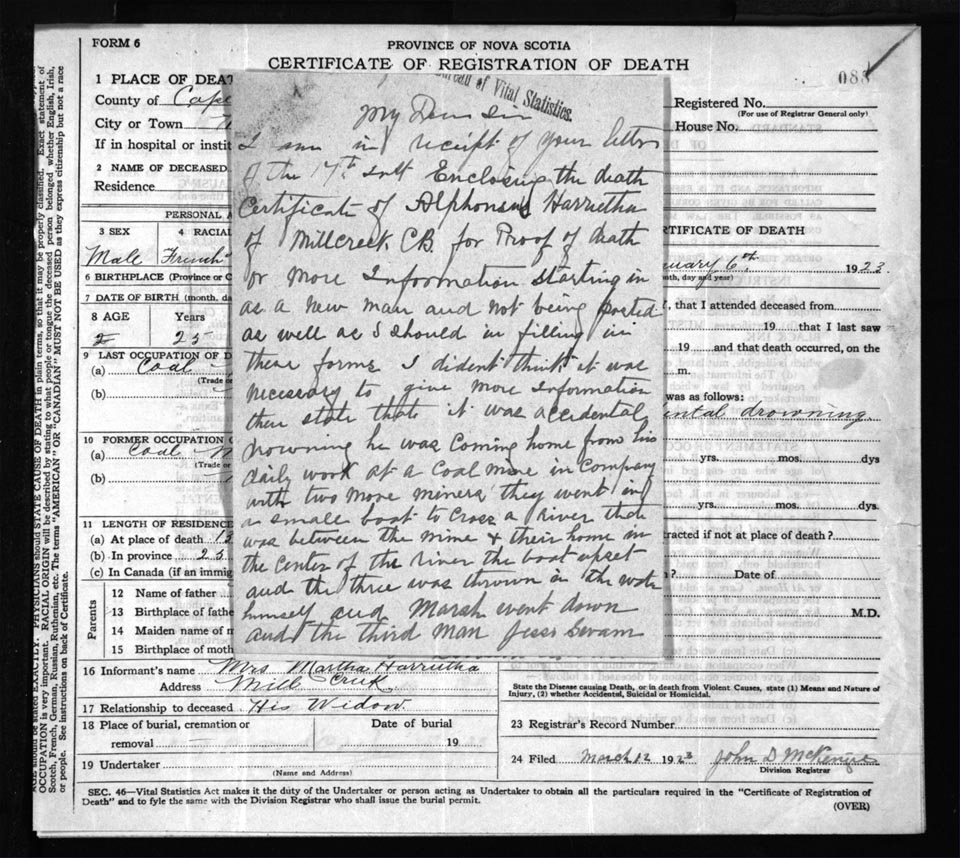 FORM 6
PROVINCE OF NOVA SCOTIA
CERTIFICATE OF REGISTRATION OF DEATH
1 PLACE OF DEAT
County of Cape
City or Town
If in hospital or instit
2 NAME OF DECEASED
Residence
PERSONAL A
3 SEX
4 RACIAL
Male French
6 BIRTHPLACE (Province or C
7 DATE OF BIRTH (month, da
8 AGE
Years
25
9 LAST OCCUPATION OF D
(a) Coal
(Trade o
(b)
10 FORMER OCCUPATION O
(a) Coal M
(Trade or
(b)
11 LENGTH OF RESIDENCE
(a) At place of death
(b) In province 25
(c) In Canada (if an immig
Parents
12 Name of father
13 Birthplace of fathe
14 Maiden name of m
15 Birthplace of moth
16 Informant's name Mrs Martha Harrietha
Address Mill Creek
17 Relationship to deceased His Widow
18 Place of burial, cremation or
removal
Date of burial
19
19 Undertaker
(Name and Address)
SEC. 46—Vital Statistics Act makes it the duty of the Undertaker or person acting as Undertaker to obtain all the particulars required in the "Certificate of Registration of
Death" and to fyle the same with the Division Registrar who shall issue the burial permit.
(OVER)
Bureau of Vital Statistics.
My Dear Sir
I am in receipt of your letter
of the 17th Inst Enclosing the death
Certificate of Alphonsus Harrietha
of Millcreek CB. for Proof of death
or more Information starting in
as a new man and not being posted
as well as I should in filling in
these forms I dident think it was
necessary to give more Information
then state thats it was accidental
drowning he was coming home from his
daily work at a coal mine in company
with two more miners they went in
a small boat to cross a river that
was between the mine & their home in
the center of the river the boat upset
and the three was thrown in the wate
himself and Marsh went down
and the third man Jess
Registered No.
(For use of Registrar General only)
House No.
RTIFICATE OF DEATH
nuary 6th 1923.
nth, day and year)
, that I attended deceased from
19 that I last saw
19 and that death occurred, on the
m.
was as follows:
ental drowning.
yrs. mos. dys
yrs. mos. dys.
tracted if not at place of death?
? Date of
M.D.
State the Disease causing Death, or in death from Violent Causes, state (1) Means and Nature of
Injury, (2) whether Accidental, Suicidal or Homicidal.
23 Registrar's Record Number
24 Filed March 12 1923 John D McKenzie
Division Registrar
AGE should be stated EXACTLY. PHYSICIANS should state CAUSE OF DEATH in plain terms, so that it may be properly classified. Exact statement of
OCCUPATION is very important. RACIAL ORIGIN will be described by stating to what people or tongue the deceased person belonged whether English, Irish,
Scotch, French, German, Russian, Ruthenian, etc. The terms "AMERICAN" or "CANADIAN" MUST NOT BE USED as they express citizenship but not a race
or people. See instructions on back of Certificate.